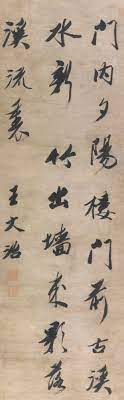 門内夕陽樓門前古溪
水新竹出墻来影落
溪流裏
王文治